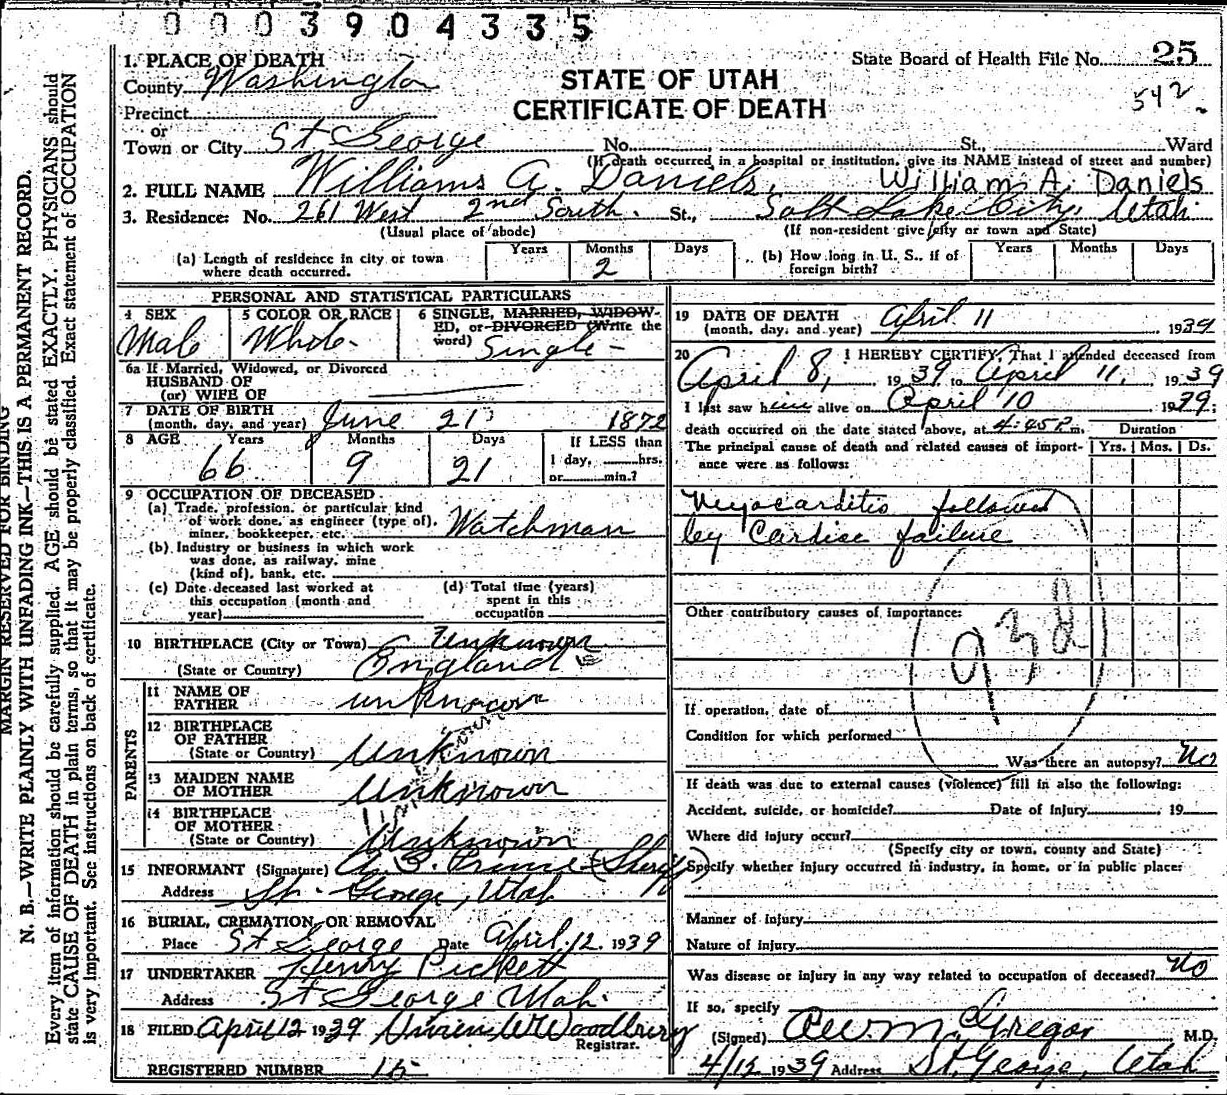 0003904335
State Board of Health File No. 25
542
1. PLACE OF DEATH
County Washington
STATE OF UTAH
CERTIFICATE OF DEATH
Precinct
or
Town or City St George No. St., Ward
(If death occurred in a hospital or institution, give its NAME instead of street and number)
2. FULL NAME Williams A. Daniels, William A. Daniels
3. Residence: No. 261 West 2nd South. St., Salt Lake City, Utah
(Usual place of abode) (If non-resident give city or town and State)
(a) Length of residence in city or town where death occurred. Years Months 2 Days
(b) How long in U. S., if of foreign birth? Years Months Days
PERSONAL AND STATISTICAL PARTICULARS
4 SEX Male
5 COLOR OR RACE White
6 SINGLE, MARRIED, WIDOWED, or DIVORCED (Write the word) Single
6a If Married, Widowed, or Divorced
HUSBAND OF
(or) WIFE OF
7 DATE OF BIRTH
(month, day, and year) June 21 1872
8 AGE Years 66 Months 9 Days 21 If LESS than
1 day, hrs.
or min.?
9 OCCUPATION OF DECEASED
(a) Trade, profession, or particular kind
of work done, as engineer (type of),
miner, bookkeeper, etc. Watchman
(b) Industry or business in which work
was done, as railway, mine
(kind of), bank, etc.
(c) Date deceased last worked at
this occupation (month and
year)
(d) Total time (years)
spent in this
occupation
10 BIRTHPLACE (City or Town) Unknown
(State or Country) England
PARENTS
11 NAME OF
FATHER unknown
12 BIRTHPLACE
OF FATHER
(State or Country) Unknown
13 MAIDEN NAME
OF MOTHER Unknown
14 BIRTHPLACE
OF MOTHER
(State or Country) Unknown
15 INFORMANT (Signature) (Sheriff)
Address St. George, Utah
16 BURIAL, CREMATION, OR REMOVAL
Place St George Date April 12 1939
17 UNDERTAKER Henry Pickett
Address St George Utah.
18 FILED April 12 1939 Vivien W Woodbury
Registrar.
REGISTERED NUMBER 15
19 DATE OF DEATH
(month, day, and year) April 11 1939
20 I HEREBY CERTIFY, That I attended deceased from
April 8, 1939 to April 11, 1939
I last saw him alive on April 10 1939,
death occurred on the date stated above, at 4:45 P.m.
Duration
The principal cause of death and related causes of importance were as follows: Yrs. Mos. Ds.
Myocarditis followed
by Cardiac failure
Other contributory causes of importance:
93d
If operation, date of
Condition for which performed
Was there an autopsy? No
If death was due to external causes (violence) fill in also the following:
Accident, suicide, or homicide? Date of Injury 19
Where did injury occur?
(Specify city or town, county and State)
Specify whether injury occurred in industry, in home, or in public place:
Manner of injury
Nature of injury
Was disease or injury in any way related to occupation of deceased? No
If so, specify
(Signed) McGregor M.D.
4/12 1939 Address St. George, Utah
MARGIN RESERVED FOR BINDING
N. B.—WRITE PLAINLY WITH UNFADING INK—THIS IS A PERMANENT RECORD.
Every item of information should be carefully supplied. AGE should be stated EXACTLY. PHYSICIANS should
state CAUSE OF DEATH in plain terms, so that it may be properly classified. Exact statement of OCCUPATION
is very important. See instructions on back of certificate.